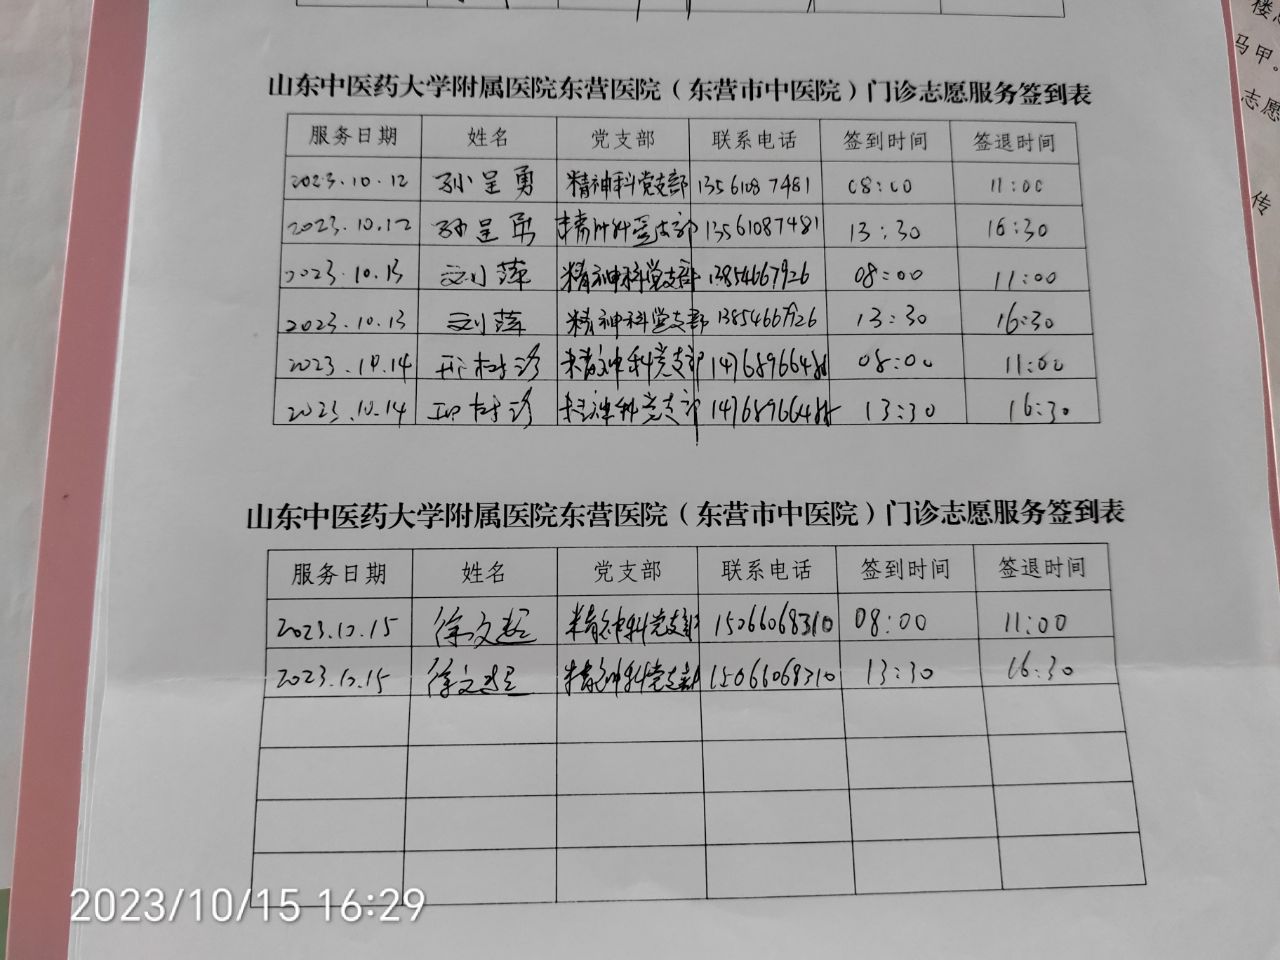 楼
马甲。
志愿
传
山东中医药大学附属医院东营医院（东营市中医院）门诊志愿服务签到表
服务日期 姓名 党支部 联系电话 签到时间 签退时间
2023.10.12 孙呈勇 精神科党支部 13561087481 08:00 11:00
2023.10.12 孙呈勇 精神科党支部 13561087481 13:30 16:30
2023.10.13 刘萍 精神科党支部 13854667926 08:00 11:00
2023.10.13 刘萍 精神科党支部 13854667926 13:30 16:30
2023.10.14 精神科党支部 08:00 11:00
2023.10.14 精神科党支部 13:30 16:30
山东中医药大学附属医院东营医院（东营市中医院）门诊志愿服务签到表
服务日期 姓名 党支部 联系电话 签到时间 签退时间
2023.10.15 徐文超 精神科党支部 15066068310 08:00 11:00
2023.10.15 徐文超 精神科党支部 15066068310 13:30 16:30
2023/10/15 16:29